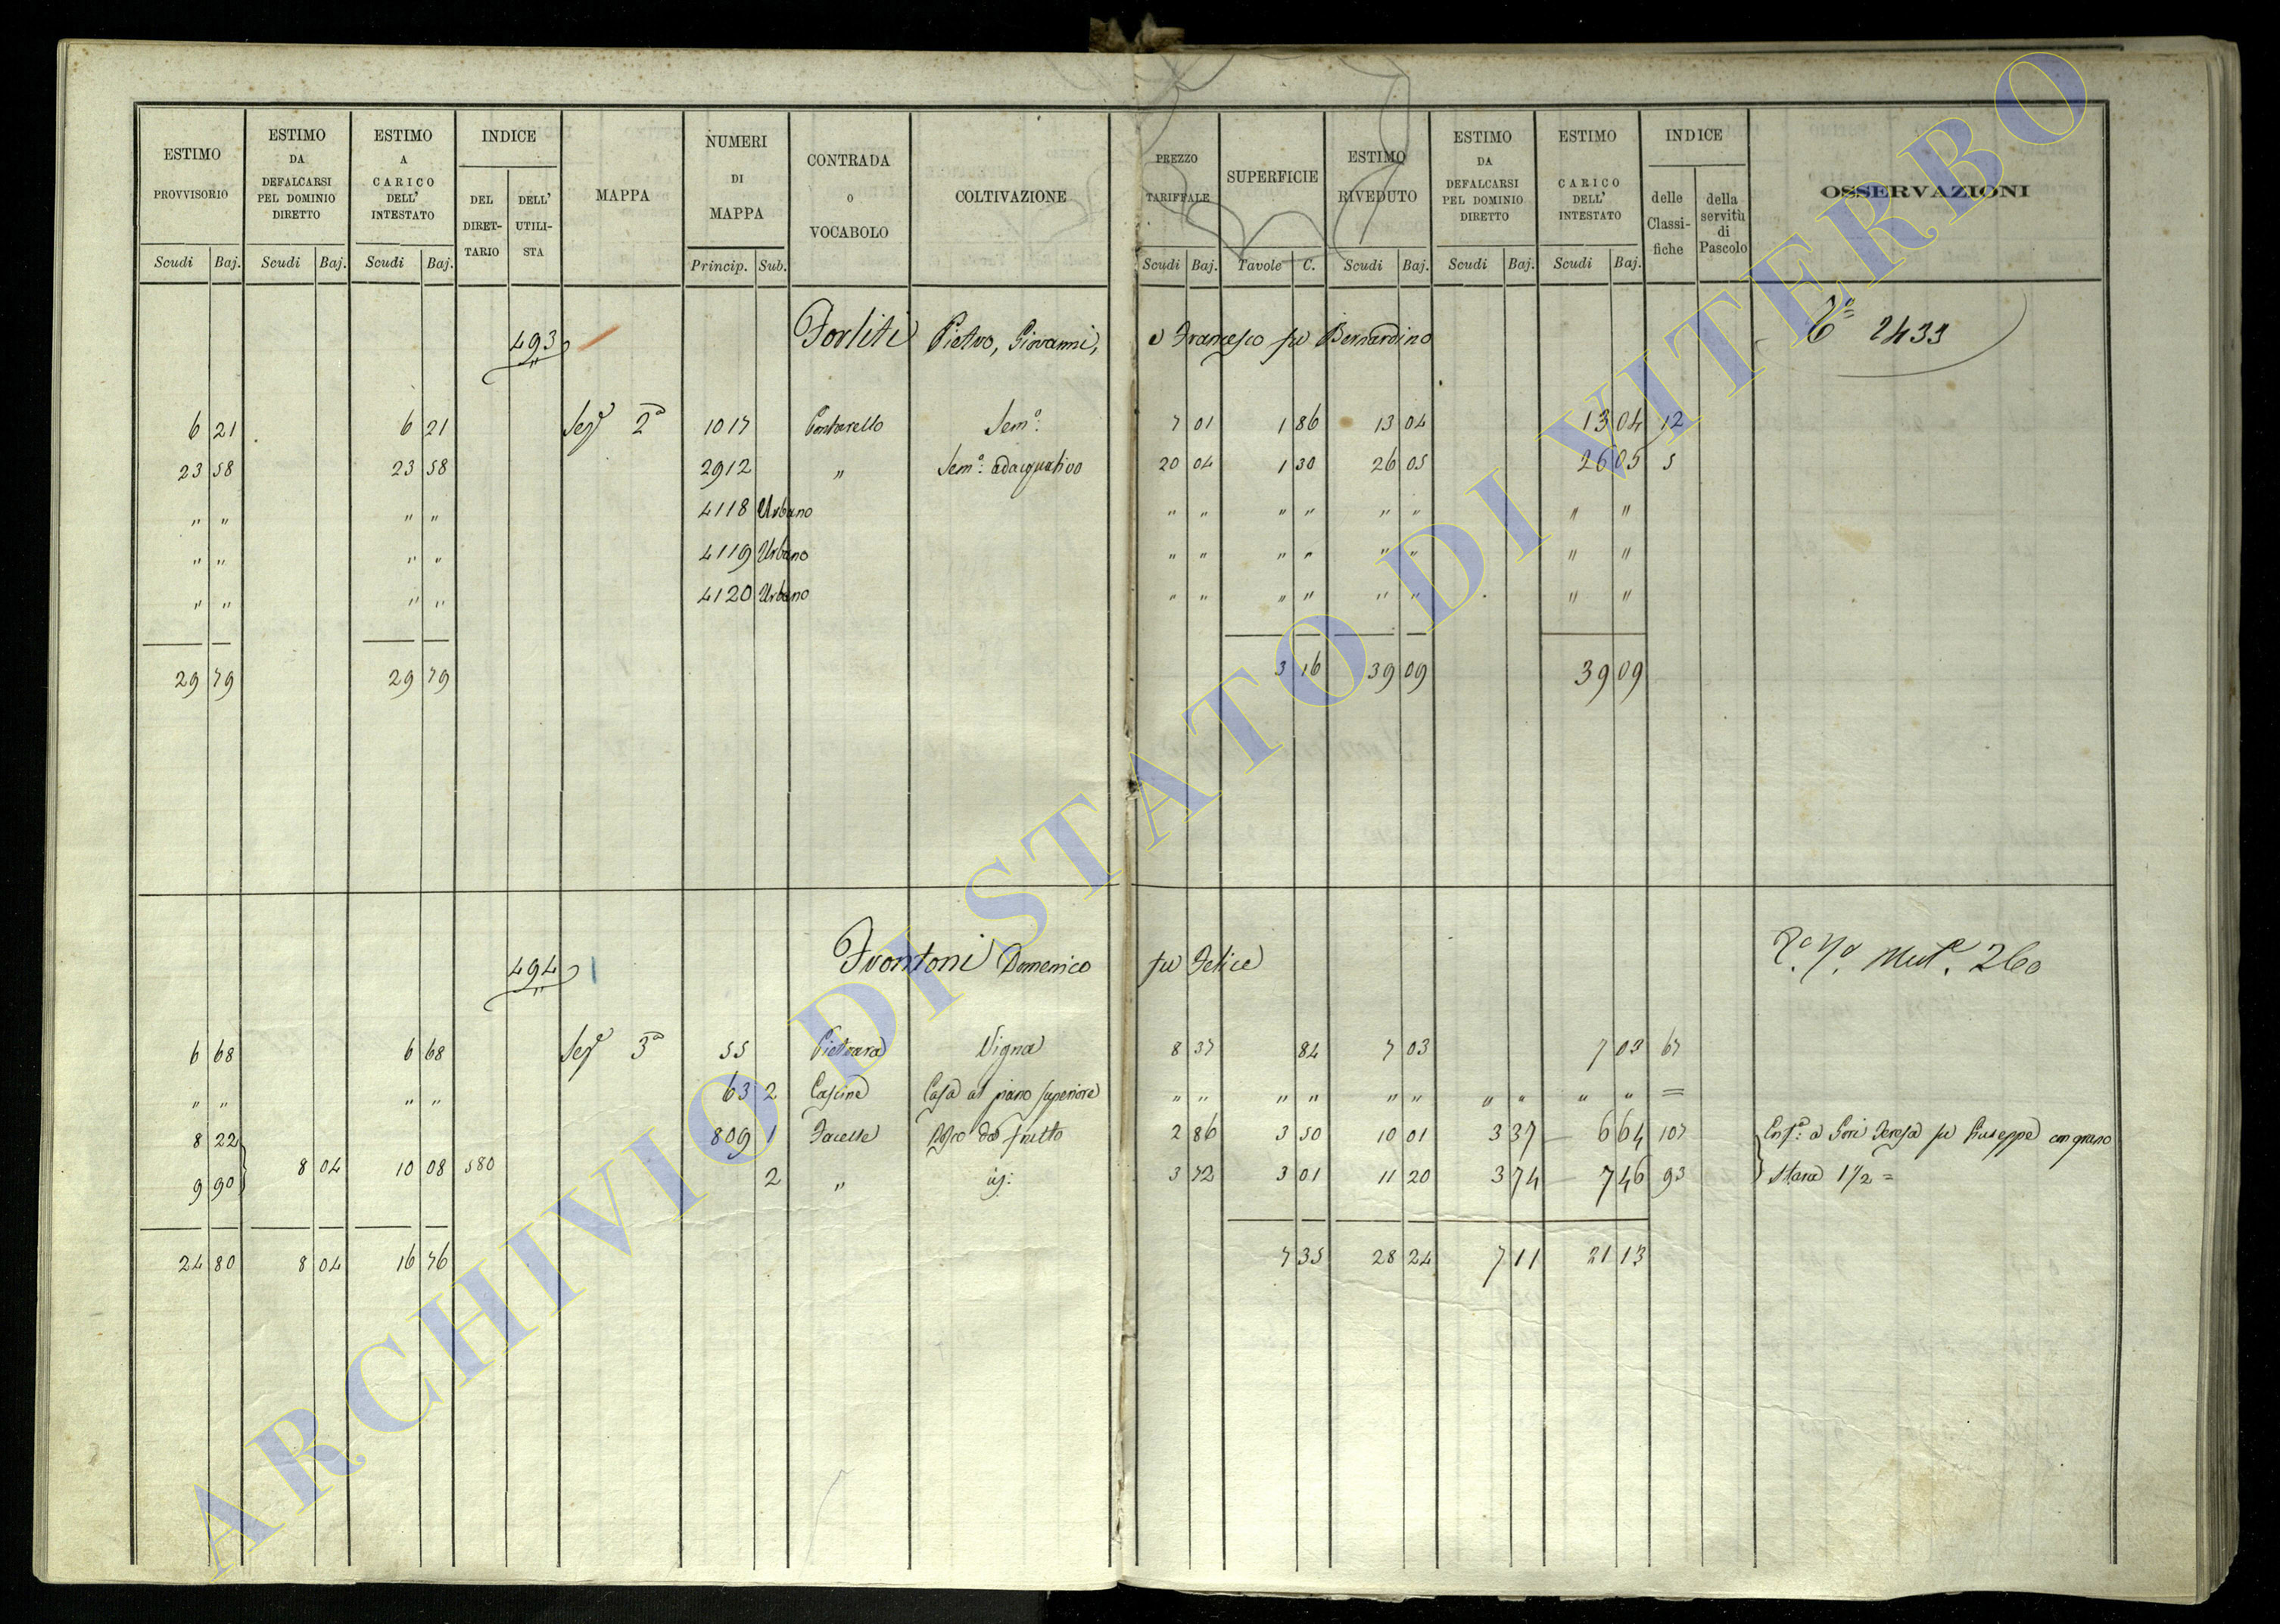 ESTIMO PROVVISORIO
ESTIMO DA DEFALCARSI PEL DOMINIO DIRETTO
ESTIMO A CARICO DELL' INTESTATO
INDICE
DEL DIRET-TARIO
DELL' UTILI-STA
MAPPA
NUMERI DI MAPPA
CONTRADA O VOCABOLO
COLTIVAZIONE
PREZZO TARIFFALE
SUPERFICIE
ESTIMO RIVEDUTO
ESTIMO DA DEFALCARSI PEL DOMINIO DIRETTO
ESTIMO A CARICO DELL' INTESTATO
INDICE
delle Classi-fiche
della servitù di Pascolo
OSSERVAZIONI
Scudi Baj. Scudi Baj. Scudi Baj. Princip. Sub. Scudi Baj. Tavole C. Scudi Baj. Scudi Baj. Scudi Baj.
493 Forliti Pietro, Giovanni, e Francesco fu Bernardino 2433
6 21 6 21 Sezᵉ 2ª 1017 Sem°: 7 01 1 86 13 04 13 04 12
23 58 23 58 2912 " Sem°: adacquativo 20 04 1 30 26 05 26 05 5
" " " " 4118 Urbano " " " " " " " "
" " " " 4119 Urbano " " " " " " " "
" " " " 4120 Urbano " " " " " " " "
29 79 29 79 3 16 39 09 39 09
494 Frontoni Domenico fu Felice Mutª. 260
6 68 6 68 Sezᵉ 3ª 55 Pietrara Vigna 8 37 84 7 03 7 03 67
" " " " 63 2 Cascine Casa al piano superiore " " " " " " " " " " =
8 22 809 1 da frutto 2 86 3 50 10 01 3 37 6 64 107 a Gori Teresa fu Giuseppe con grano
9 90 8 04 10 08 580 2 " 3 72 3 01 11 20 3 74 7 46 93 Stara 1 1/2 =
24 80 8 04 16 76 7 35 28 24 7 11 21 13
ARCHIVIO DI STATO DI VITERBO